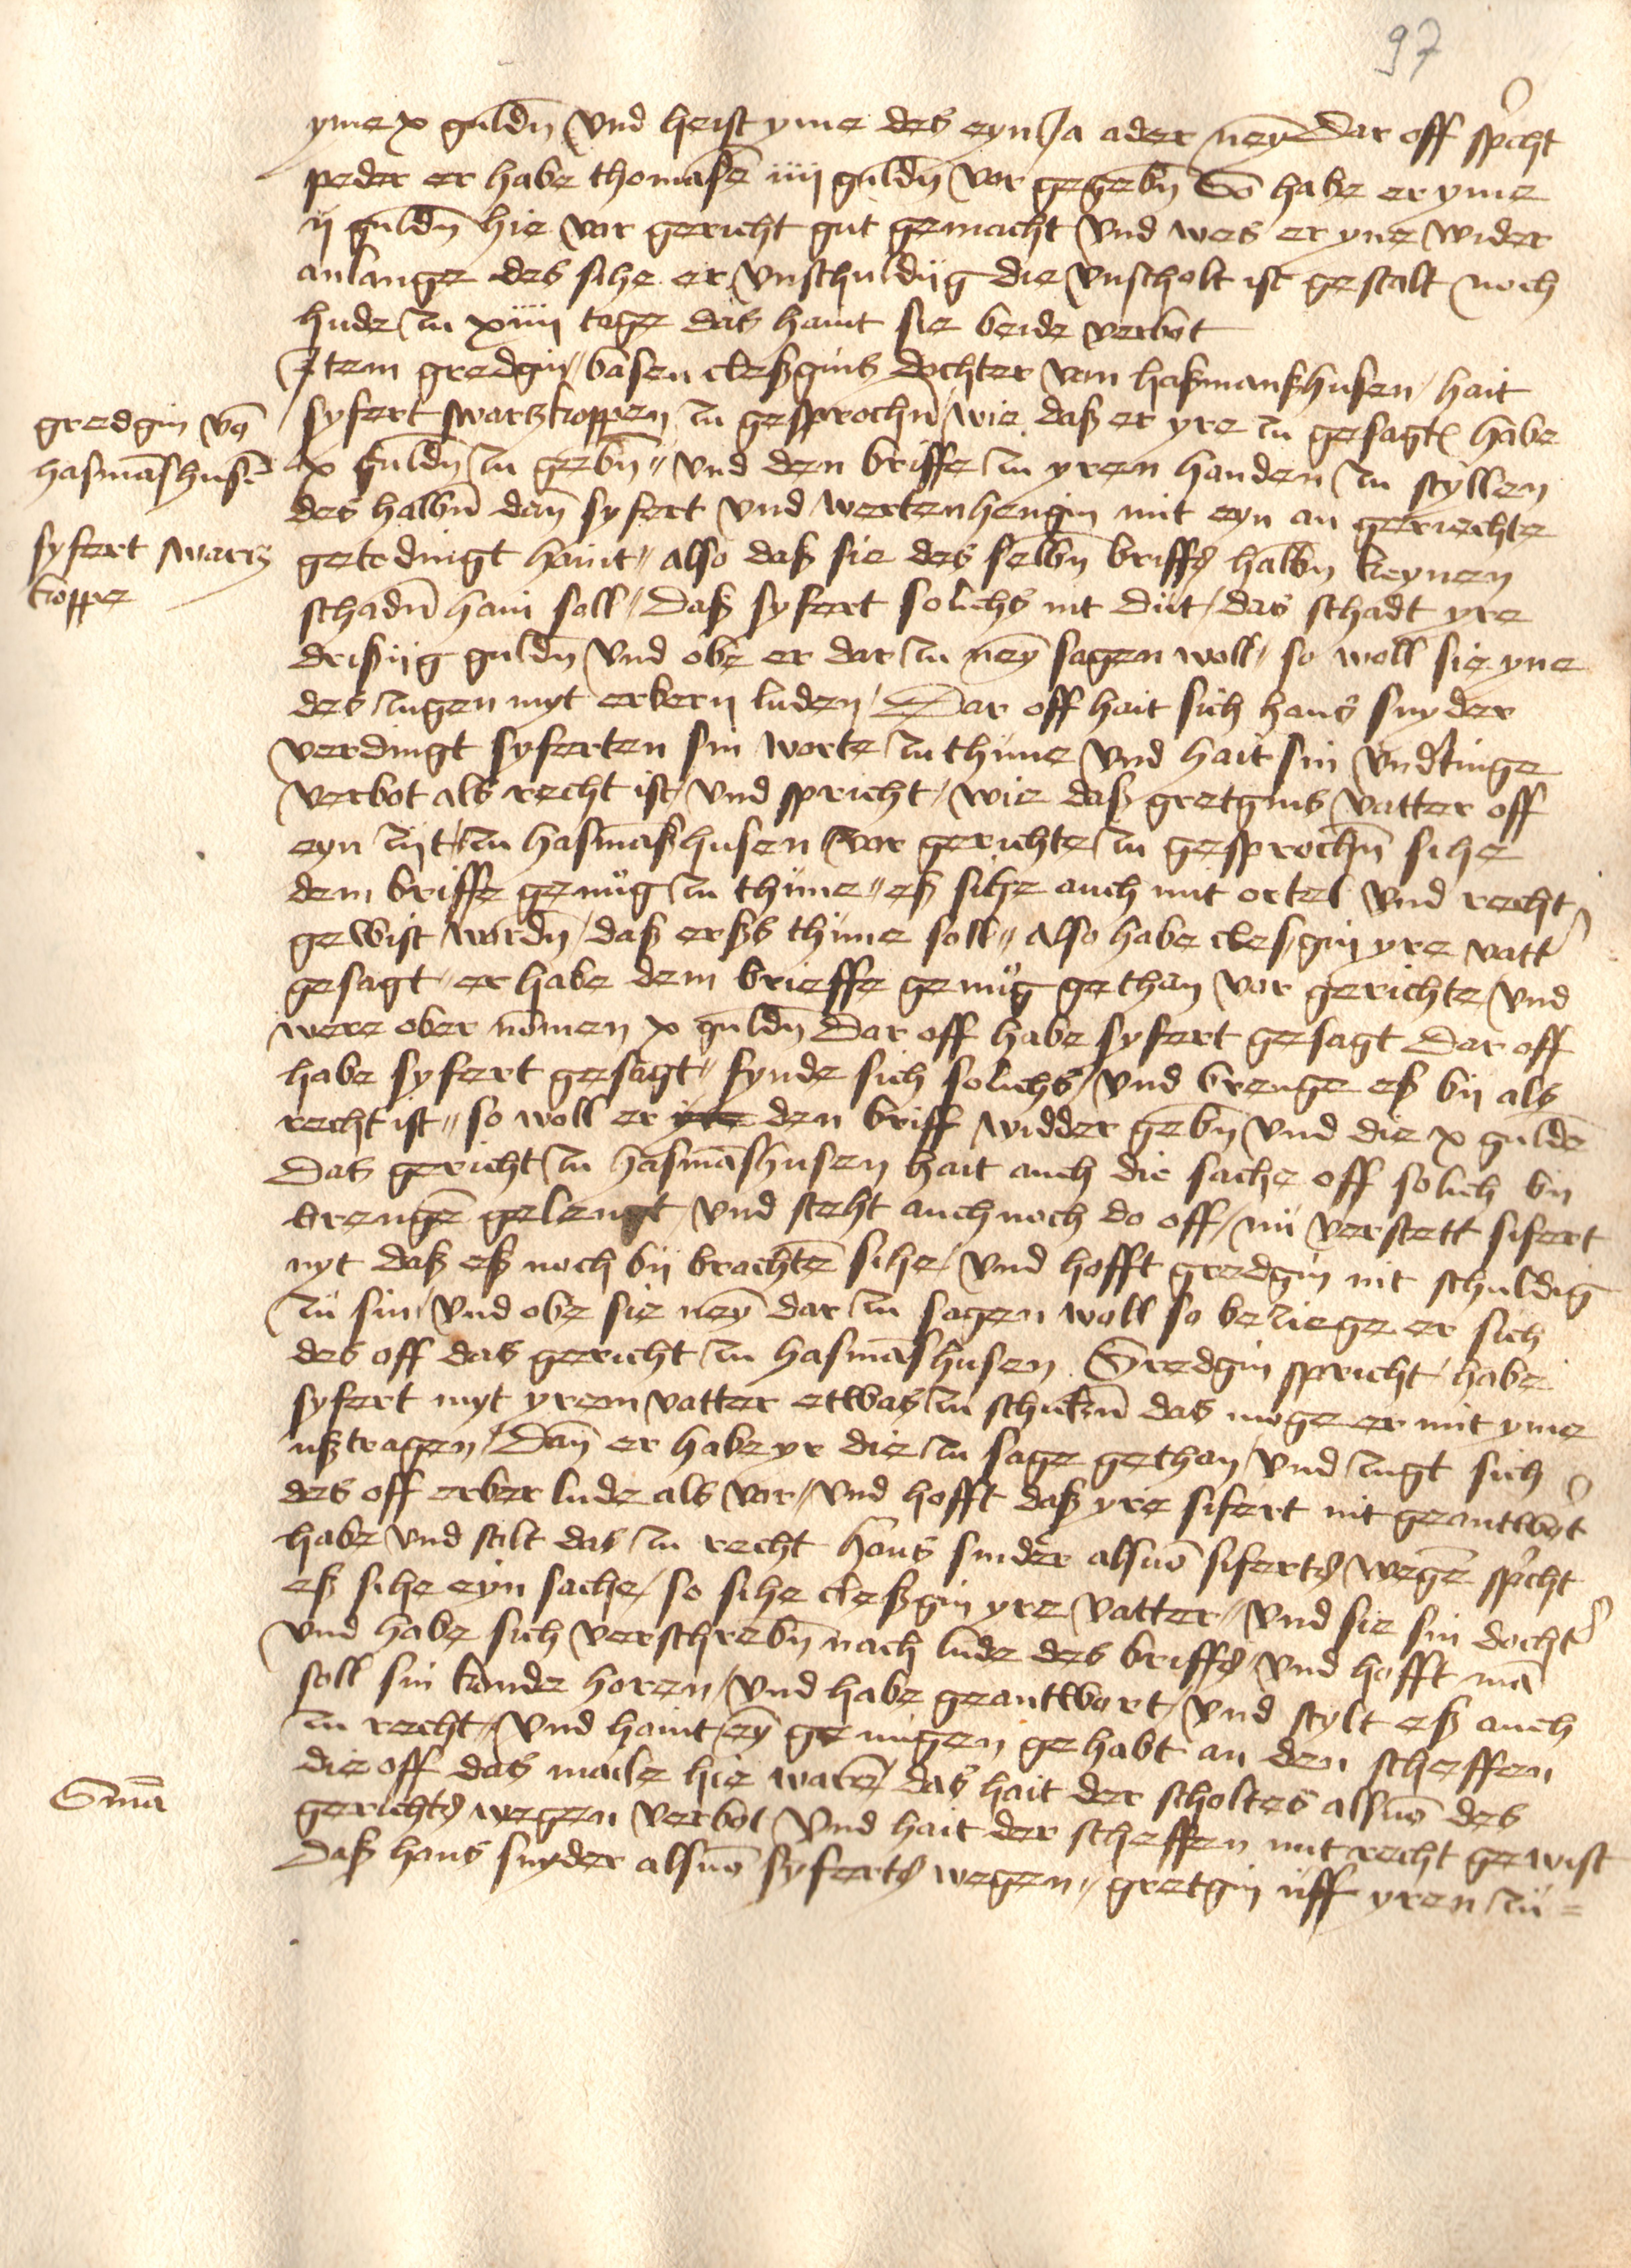 97
yme x guldn̄ vnd heist yme des eyn Ja ader neyn̄ Dar off spͥcht
peder er habe thomasē iiij guldn̄ vor gegebn̄ So habe er yme
ij guldn̄ hie vor gericht gut gemacht vnd wes er yne wider
anlange des sihe er vnschuldiig die vnscholt ist gestalt noch
hude zu xiiij tage das haint sie beide verbot
Item gredgin basen cleßgins dochter von haßmanßhusen hait
gredgin vō
hasmāshusē
syfert swartz
koppe
syfert swartzkoppen zu gesprochn̄ wie daß er yre zu gesagt habe
x guldn̄ zu gebn̄ vnd den briffe zu yren handen zu styllen
des halbn̄ dan̄ syfert vnd wertenhengin mit eyn an geriechte
getedingt haint also daß sie des selbn̄ briffs halbn̄ keynen
schadn̄ hain soll Daß syfert solichs nit düt das schadt yre
drißiig guldn̄ vnd obe er dar zu neyn̄ sagen woll so woll sie yne
des zugen myt erbern luden Dar off hait sich hans snyder
verdingt syferten sin worte zu thüne vnd hait sin vnd'tinge
verbot als recht ist vnd spricht wie daß gretgins vatter off
eyn zijt zu hasmāßhusen vor gerichte zu gesprochn̄ sihe
dem briffe genug zu thüne eß sihe auch mit ortel vnd recht
gewist wordn̄ daß erß thüne soll also habe cleßgin yre vatt'
gesagt er habe dem brieffe genug gethan vor gerichte vnd
were ober nomen x guldn̄ Dar off habe syfert gesagt Dar off
habe syfert gesagt fynde sich solichs vnd brenge eß bij als
recht ist so woll er yre den briff widder gebn̄ vnd die x guldē
Das gericht zu hasmāshusen hait auch die sache off solich bij
brengē gelengt vnd steht auch noch do off nü verstett sifert
nyt daß eß noch bij brachtē sihe vnd hofft gredgin nit schuldig
zü sin vnd obe sie neyn̄ dar zu sagen woll so beziege er sich
des off das gericht zu hasmāshusen Gredgin spricht habe
syfert myt yrem vatter etwas zu schickn̄ das moge er mit yme
ußtragen Dan̄ er habe yr die zu sage gethan vnd zugt sich
des off erber lude als vor vnd hofft daß yre sifert nit geantwͦt
habe vnd stilt das zu recht hans snider alsuō siferts wegē spͥcht
eß sihe eyn sache so sihe cleßgin yre vatter vnd sie sin docht'
vnd habe sich verschrebn̄ nach lude des briffs vnd hofft mā
soll sin konde horen vnd habe geantwort vnd stylt eß auch
zu recht vnd haint eyn̄ genugen gehabt an den scheffen
die off das male hie warē das hait der scholtes alsuō des
Smā
gerichts wegen verbot Vnd hait der scheffen mit recht gewist
Daß hans snyder alsuō syferts wegen gretgin uff yren zü=